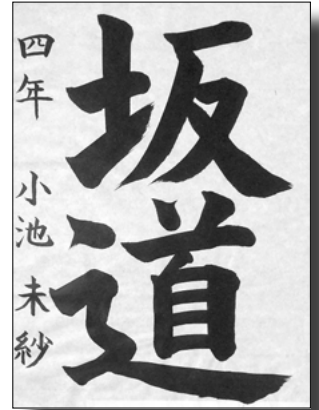 坂道
四年 小池未紗